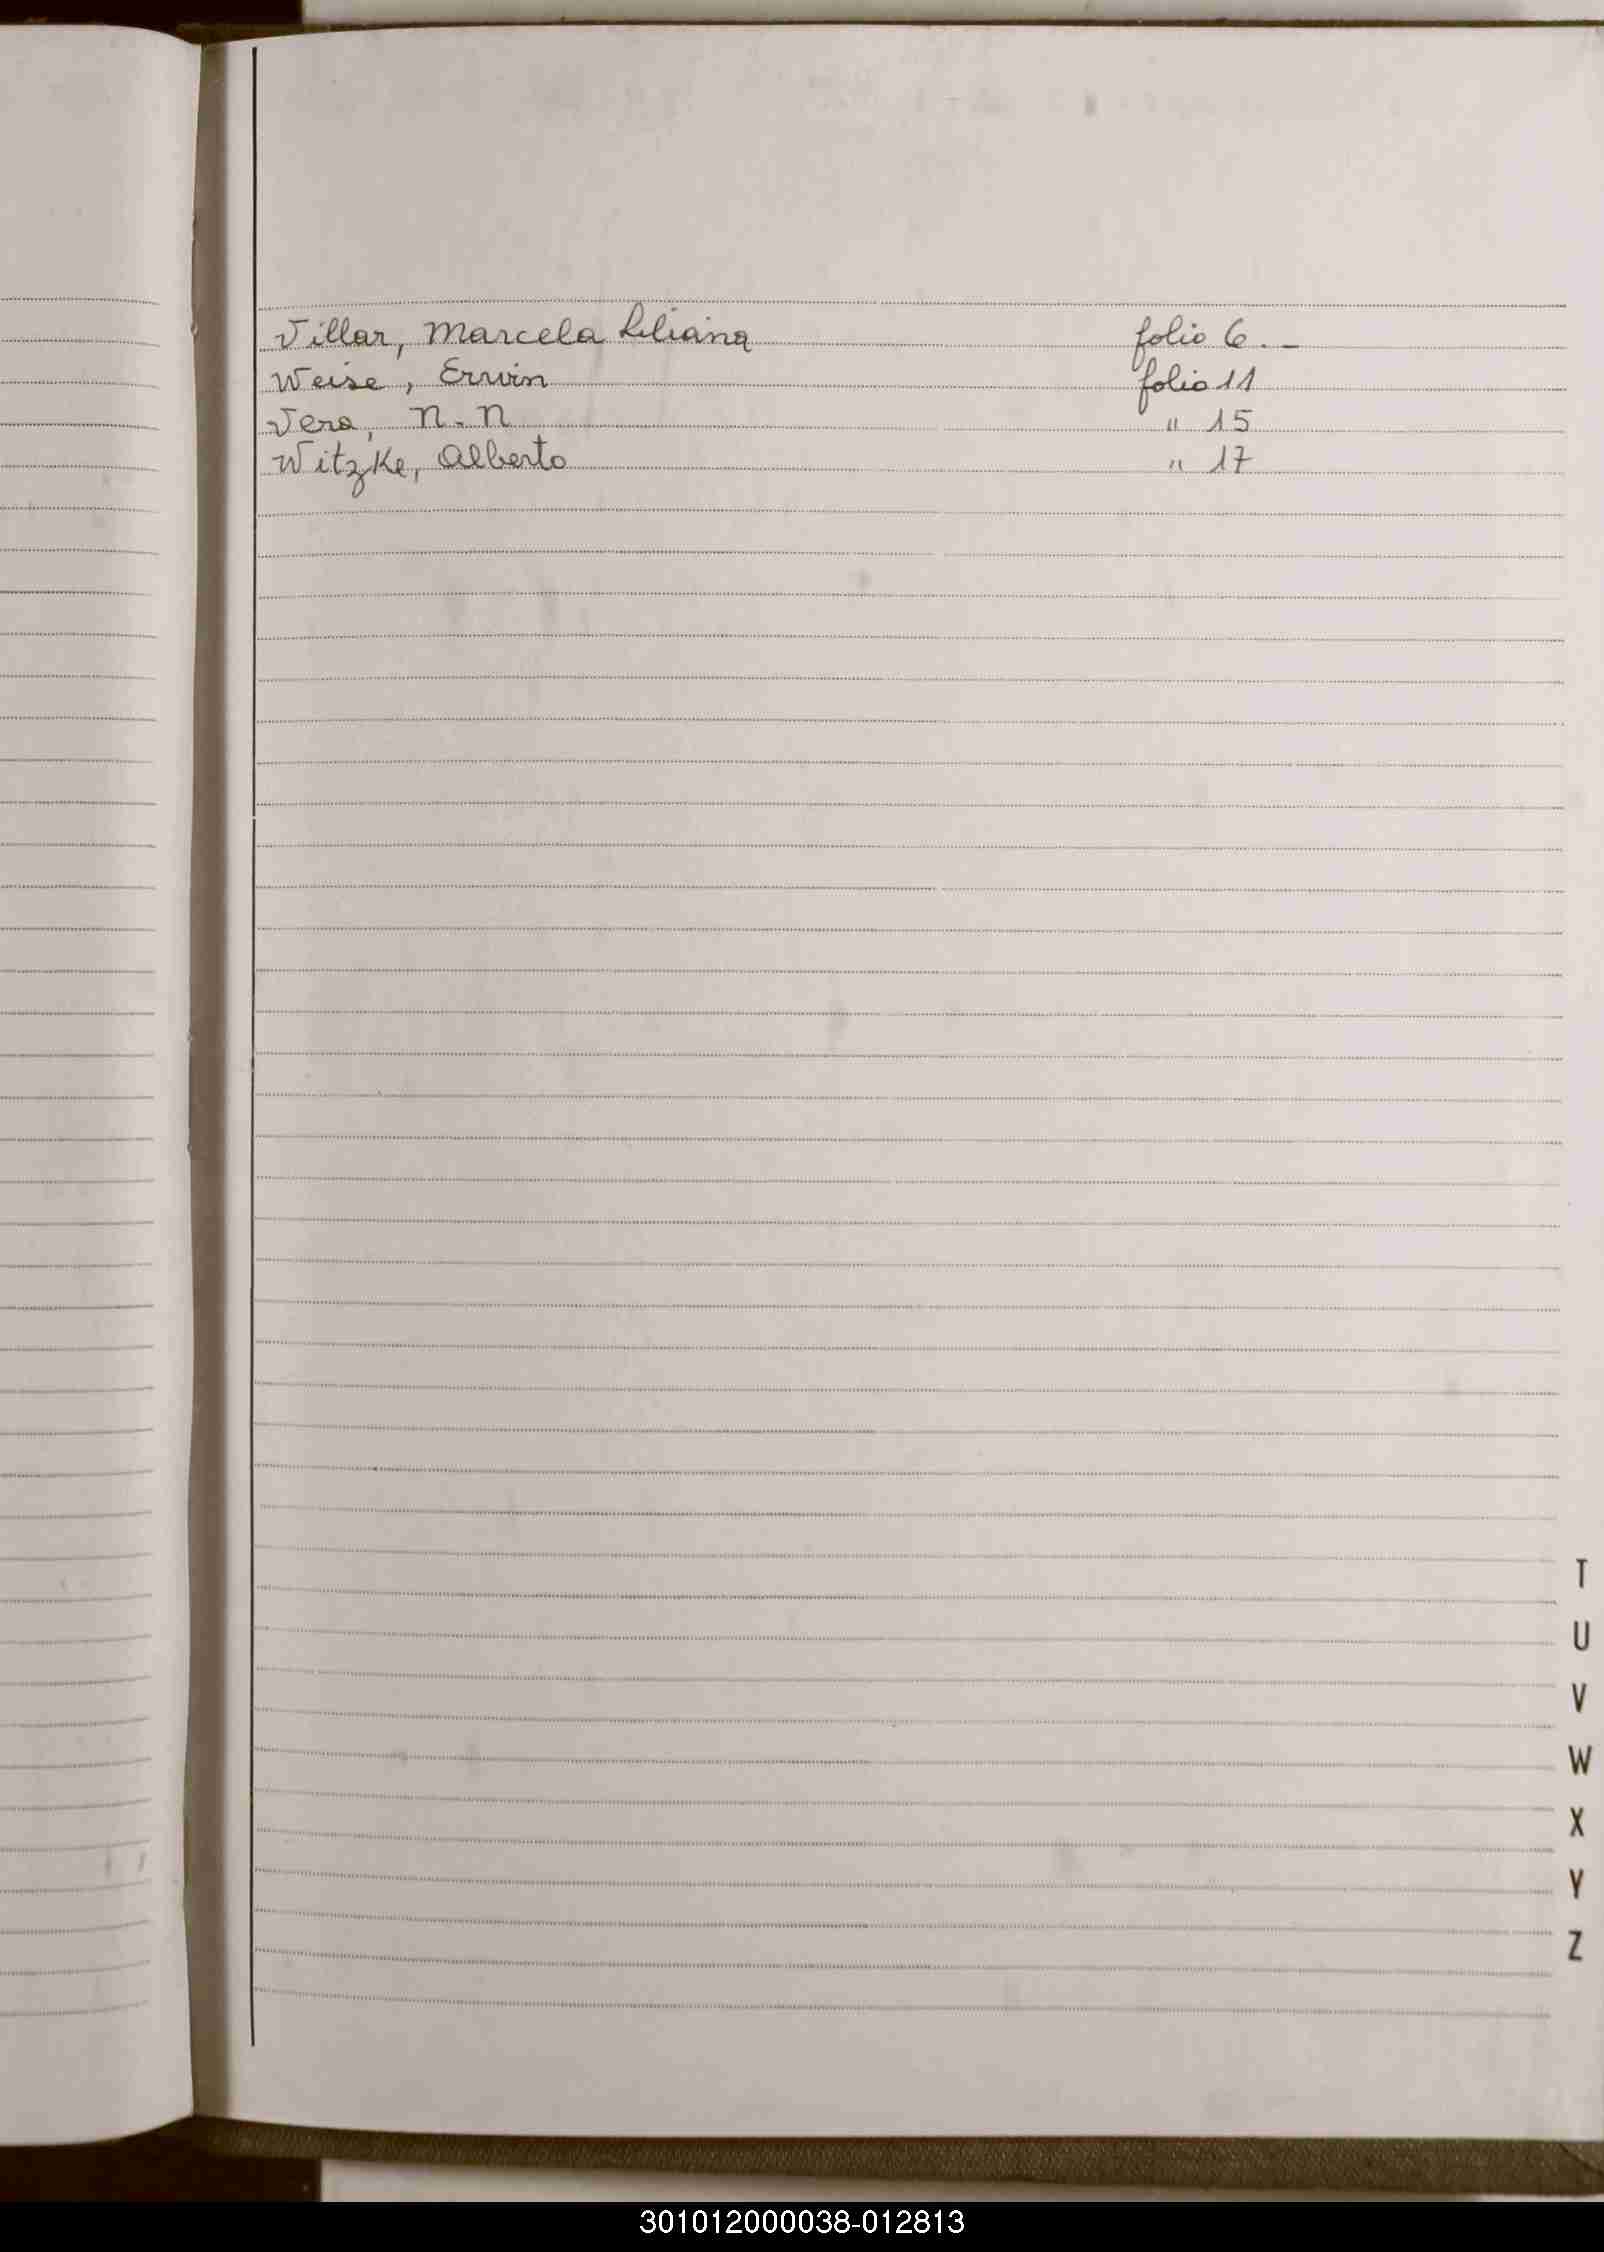 Villar, Marcela Liliana folio 6. -
Weise, Erwin folio 11
Vera, N. N " 15
Witzke, Alberto " 17
T
U
V
W
X
Y
Z
301012000038-012813